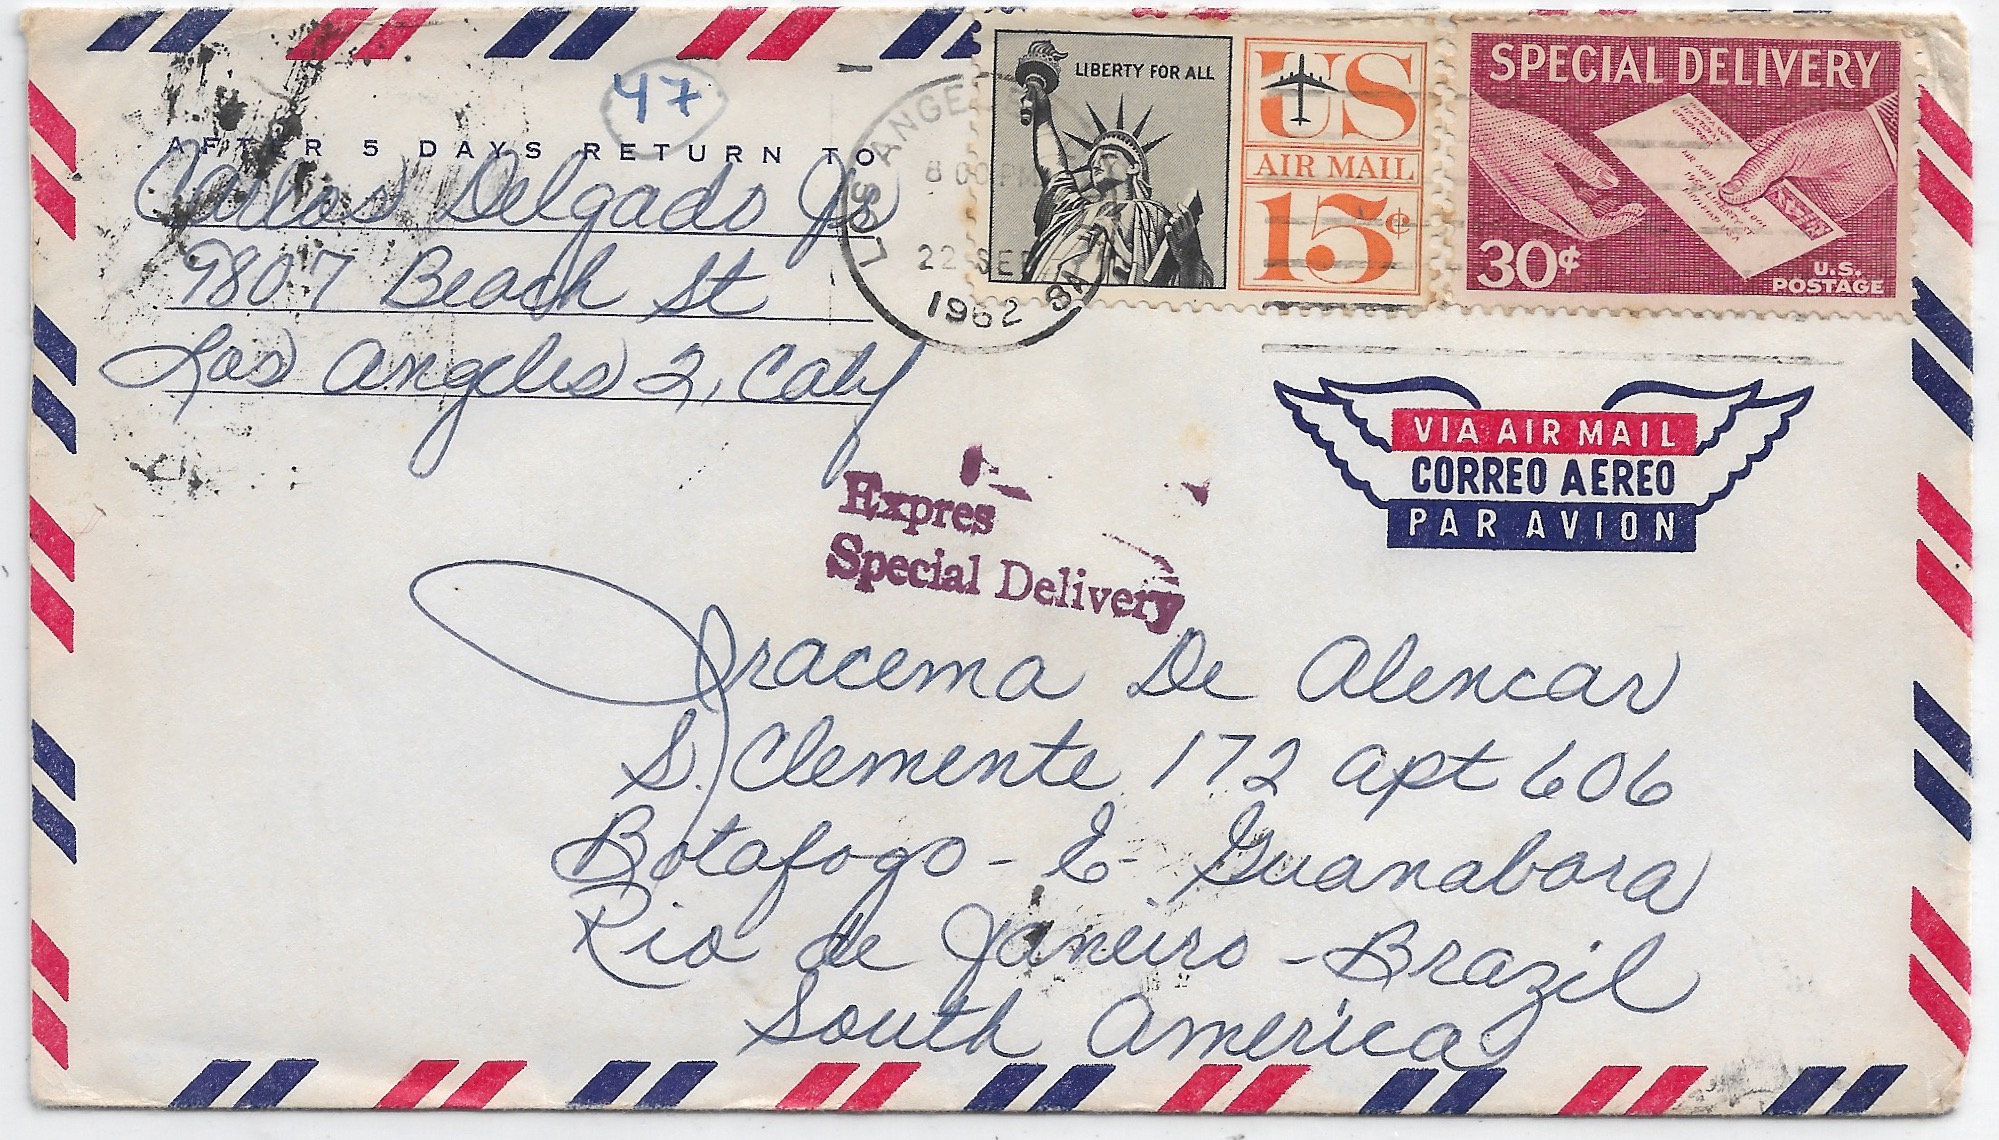 47
AFTER 5 DAYS RETURN TO
Carlos Delgado Jr
9807 Beach St
Los Angeles 2, Calif
LOS ANGELE
8 00 PM
22 SEP
1962
LIBERTY FOR ALL
US
AIR MAIL
15¢
SPECIAL DELIVERY
30¢
U.S.
POSTAGE
VIA AIR MAIL
CORREO AEREO
PAR AVION
Expres
Special Delivery
Iracema De Alencar
S. Clemente 172 apt 606
Botafogo - E - Guanabara
Rio de Janeiro - Brazil
South America